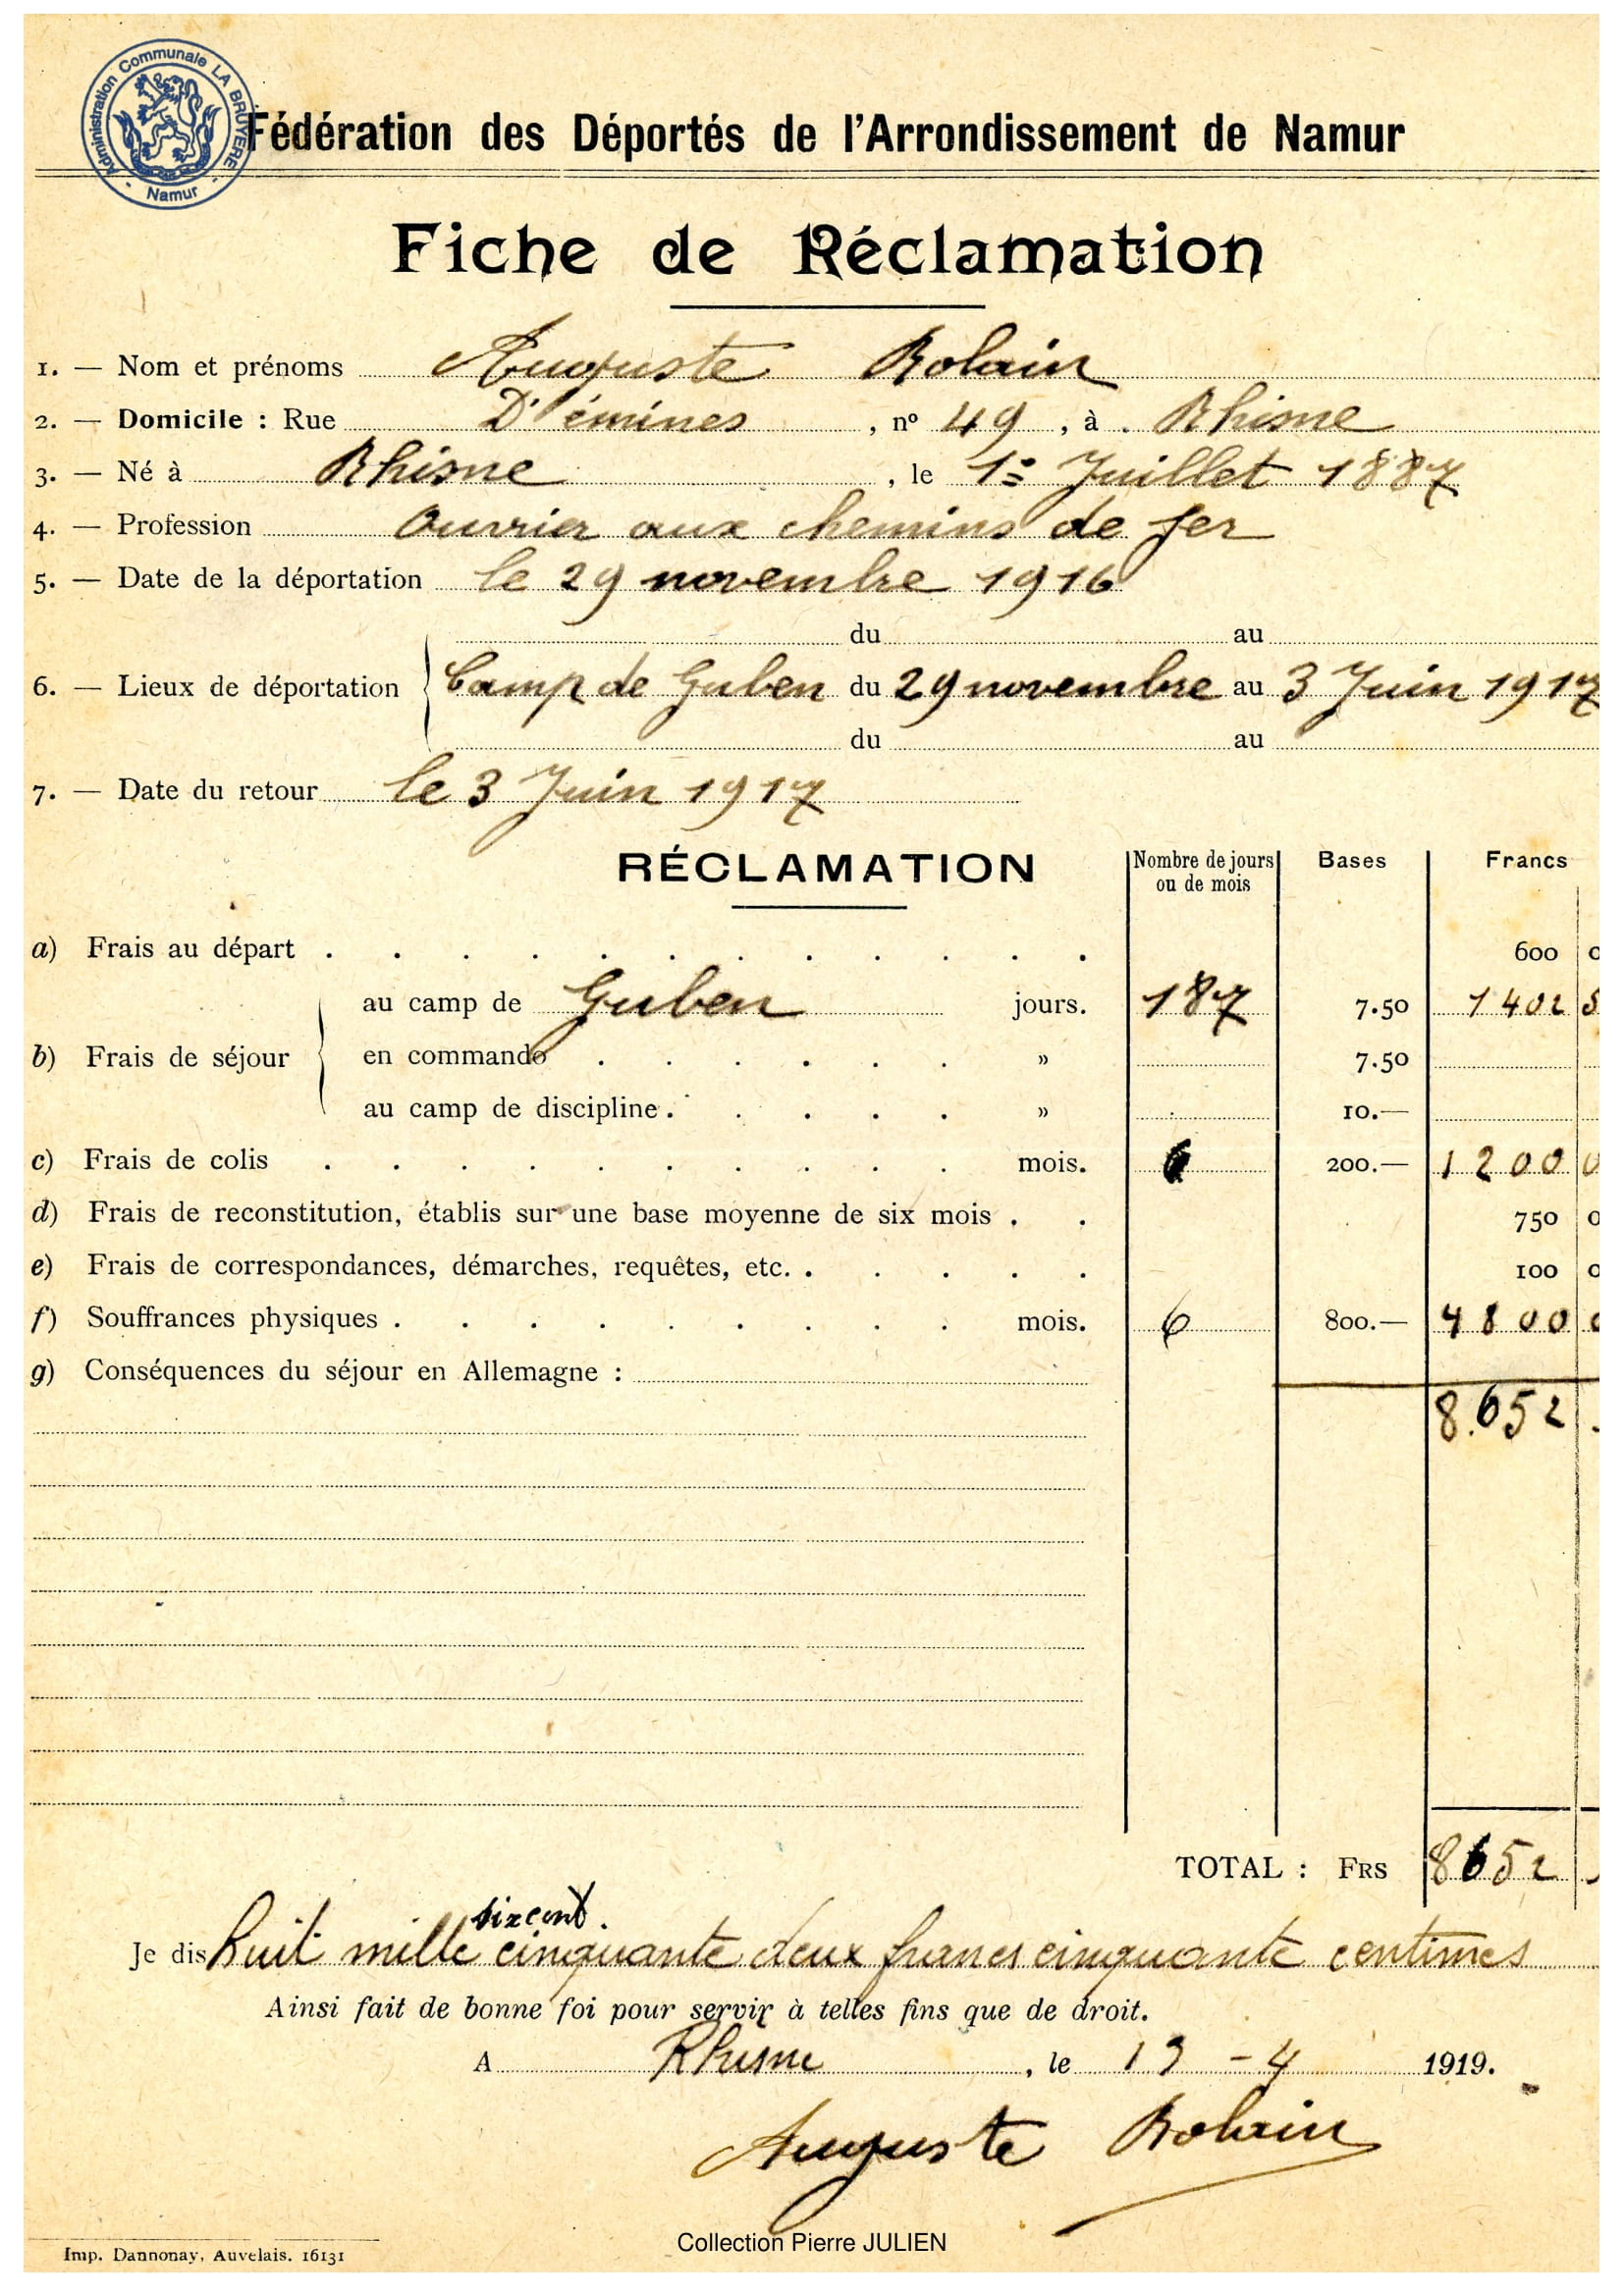 Administration Communale LA BRUYERE
- Namur -
Fédération des Déportés de l'Arrondissement de Namur
Fiche de Réclamation
1. — Nom et prénoms Auguste Rolain
2. — Domicile : Rue D'émines , nº 49 , à . Rhisne
3. — Né à Rhisne , le 1er Juillet 1887
4. — Profession Ouvrier aux chemins de fer
5. — Date de la déportation le 29 novembre 1916
du au
6. — Lieux de déportation Camp de Guben du 29 novembre au 3 Juin 1917
du au
7. — Date du retour le 3 Juin 1917
RÉCLAMATION Nombre de jours ou de mois Bases Francs
a) Frais au départ . . . . . . . . . . . . 600
au camp de Guben jours. 187 7.50 1402 5
b) Frais de séjour en commando . . . . . . » 7.50
au camp de discipline . . . . . » 10.—
c) Frais de colis . . . . . . . . . . mois. 6 200.— 1200
d) Frais de reconstitution, établis sur une base moyenne de six mois . . 750
e) Frais de correspondances, démarches, requêtes, etc. . . . . . 100
f) Souffrances physiques . . . . . . . . . mois. 6 800.— 4800
g) Conséquences du séjour en Allemagne :
8.652
TOTAL : FRS 8652
six cent
Je dis huit mille cinquante deux francs cinquante centimes
Ainsi fait de bonne foi pour servir à telles fins que de droit.
A Rhisne , le 19 - 4 1919.
Auguste Rolain
Collection Pierre JULIEN
Imp. Dannonay, Auvelais. 16131